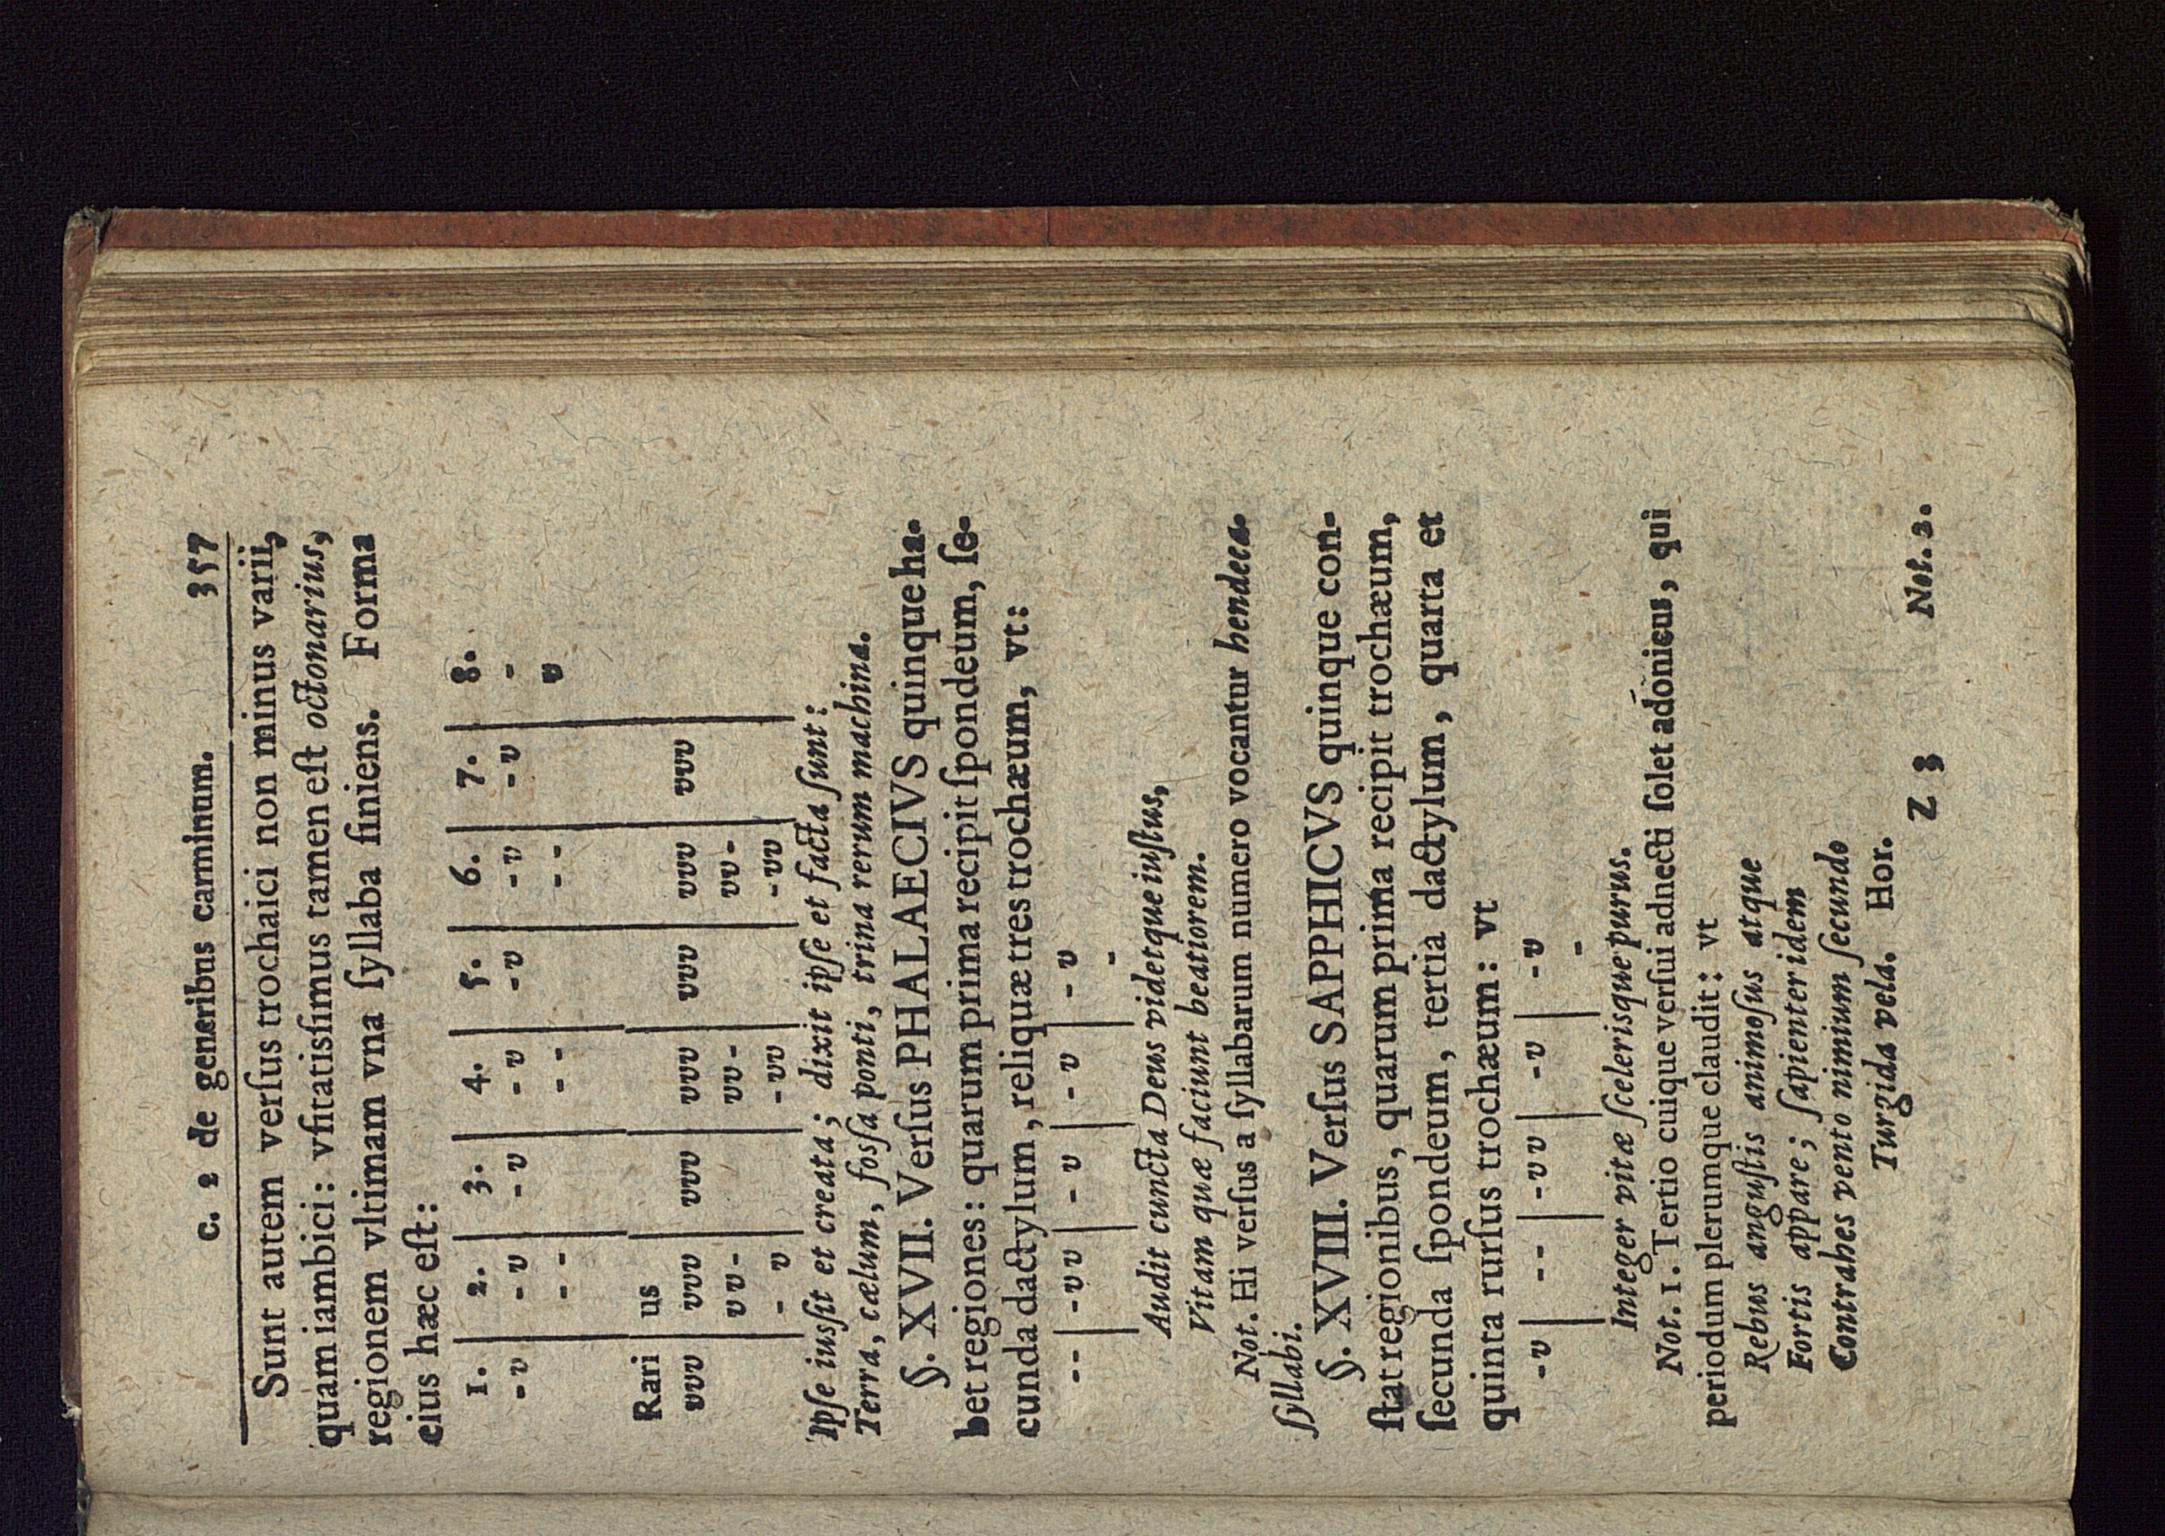 c. 2 de generibus carminum. 357
Sunt autem verſus trochaici non minus varii,
quam iambici: vſitatisſimus tamen eſt octonarius,
regionem vltimam vna ſyllaba finiens. Forma
eius hæc eſt:
1. | 2. | 3. | 4. | 5. | 6. | 7. | 8.
- v | - v | - v | - v | - v | - v | - v | -
- - | - - | - - | v
Rari us
vvv | vvv | vvv | vvv | vvv | vvv | vvv
vv- | vv- | vv-
- v | -vv | -vv
Ipſe iusſit et creata; dixit ipſe et facta ſunt:
Terra, cælum, foſſa ponti, trina rerum machina.
§. XVII. Verſus PHALAECIVS quinque ha-
bet regiones: quarum prima recipit ſpondeum, ſe-
cunda dactylum, reliquæ tres trochæum, vt:
-- | -vv | - v | - v | - v
-
Audit cuncta Deus videtque iuſtus,
Vitam quæ faciunt beatiorem.
Not. Hi verſus a ſyllabarum numero vocantur hendeca-
ſyllabi.
§. XVIII. Verſus SAPPHICVS quinque con-
ſtat regionibus, quarum prima recipit trochæum,
ſecunda ſpondeum, tertia dactylum, quarta et
quinta rurſus trochæum: vt
-v | -- | -vv | -v | -v
-
Integer vitæ ſcelerisque purus.
Not. 1. Tertio cuique verſui adnecti ſolet adonicus, qui
periodum plerumque claudit: vt
Rebus anguſtis animoſus atque
Fortis appare; ſapienter idem
Contrahes vento nimium ſecundo
Turgida vela. Hor.
Z 3 Not. 2.